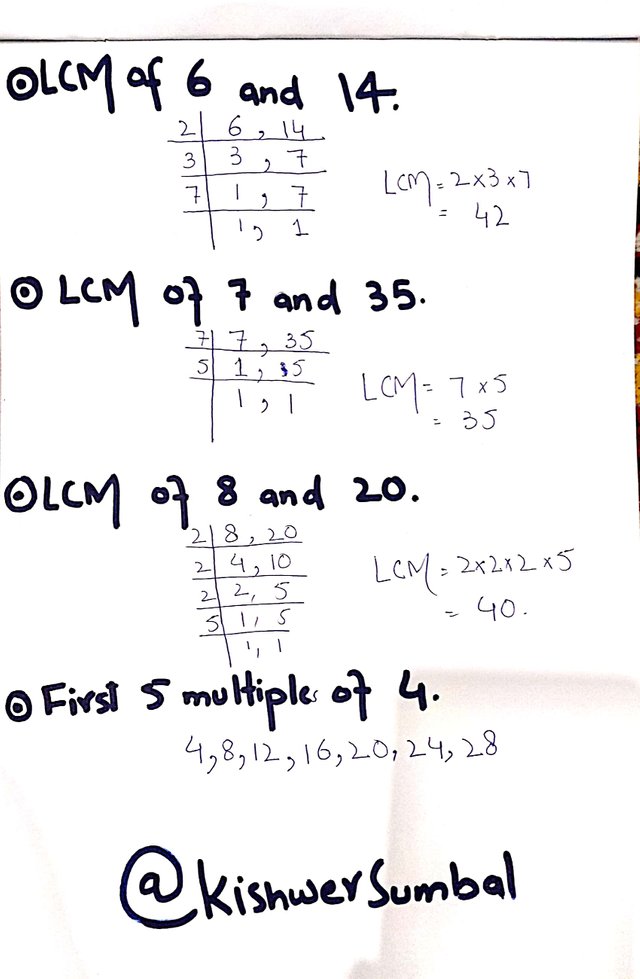 ⊙LCM of 6 and 14.
2| 6, 14
3| 3, 7
7| 1, 7
| 1, 1
LCM = 2×3×7
= 42
⊙ LCM of 7 and 35.
7| 7, 35
5| 1, 5
| 1, 1
LCM = 7×5
= 35
⊙LCM of 8 and 20.
2| 8, 20
2| 4, 10
2| 2, 5
5| 1, 5
| 1, 1
LCM = 2×2×2×5
= 40.
⊙ First 5 multiples of 4.
4,8,12,16,20,24,28
@KishwerSumbal